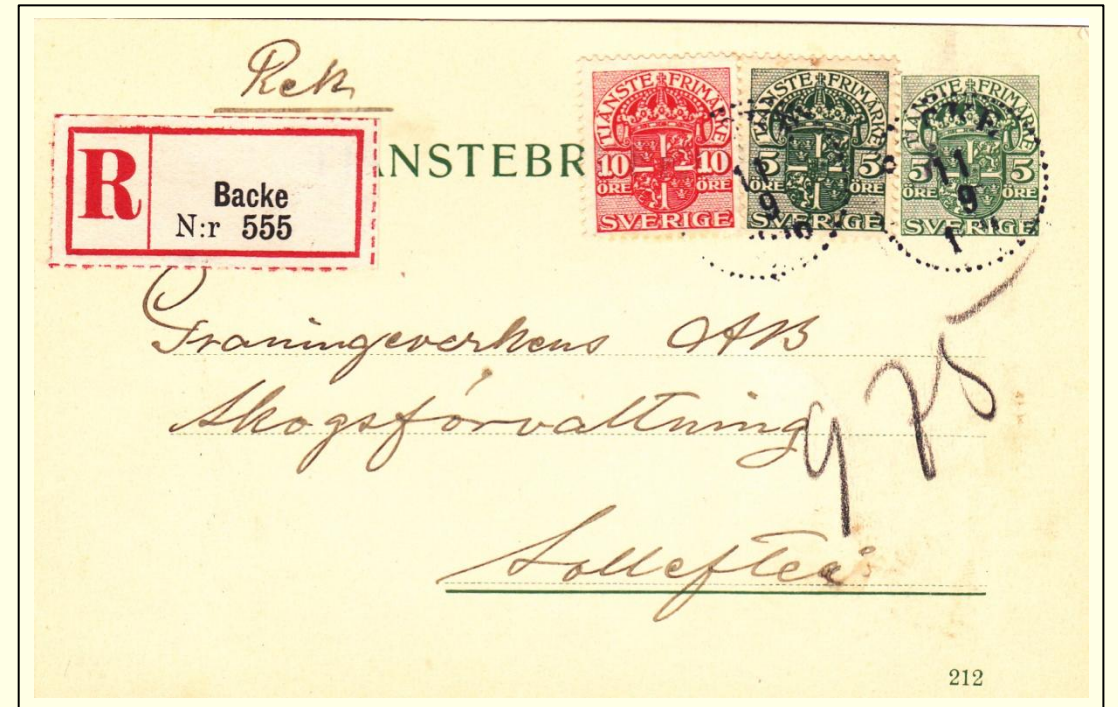 Rek
R
Backe
N:r 555
NSTEBR
TJÄNSTE FRIMÄRKE
10 10
ÖRE ÖRE
SVERIGE
TJÄNSTE FRIMÄRKE
5 5
ÖRE ÖRE
SVERIGE
TJÄNSTE FRIMÄRKE
5 5
ÖRE ÖRE
SVERIGE
11
9
Graningeverkens AB
Skogsförvaltning
925
Sollefteå
212